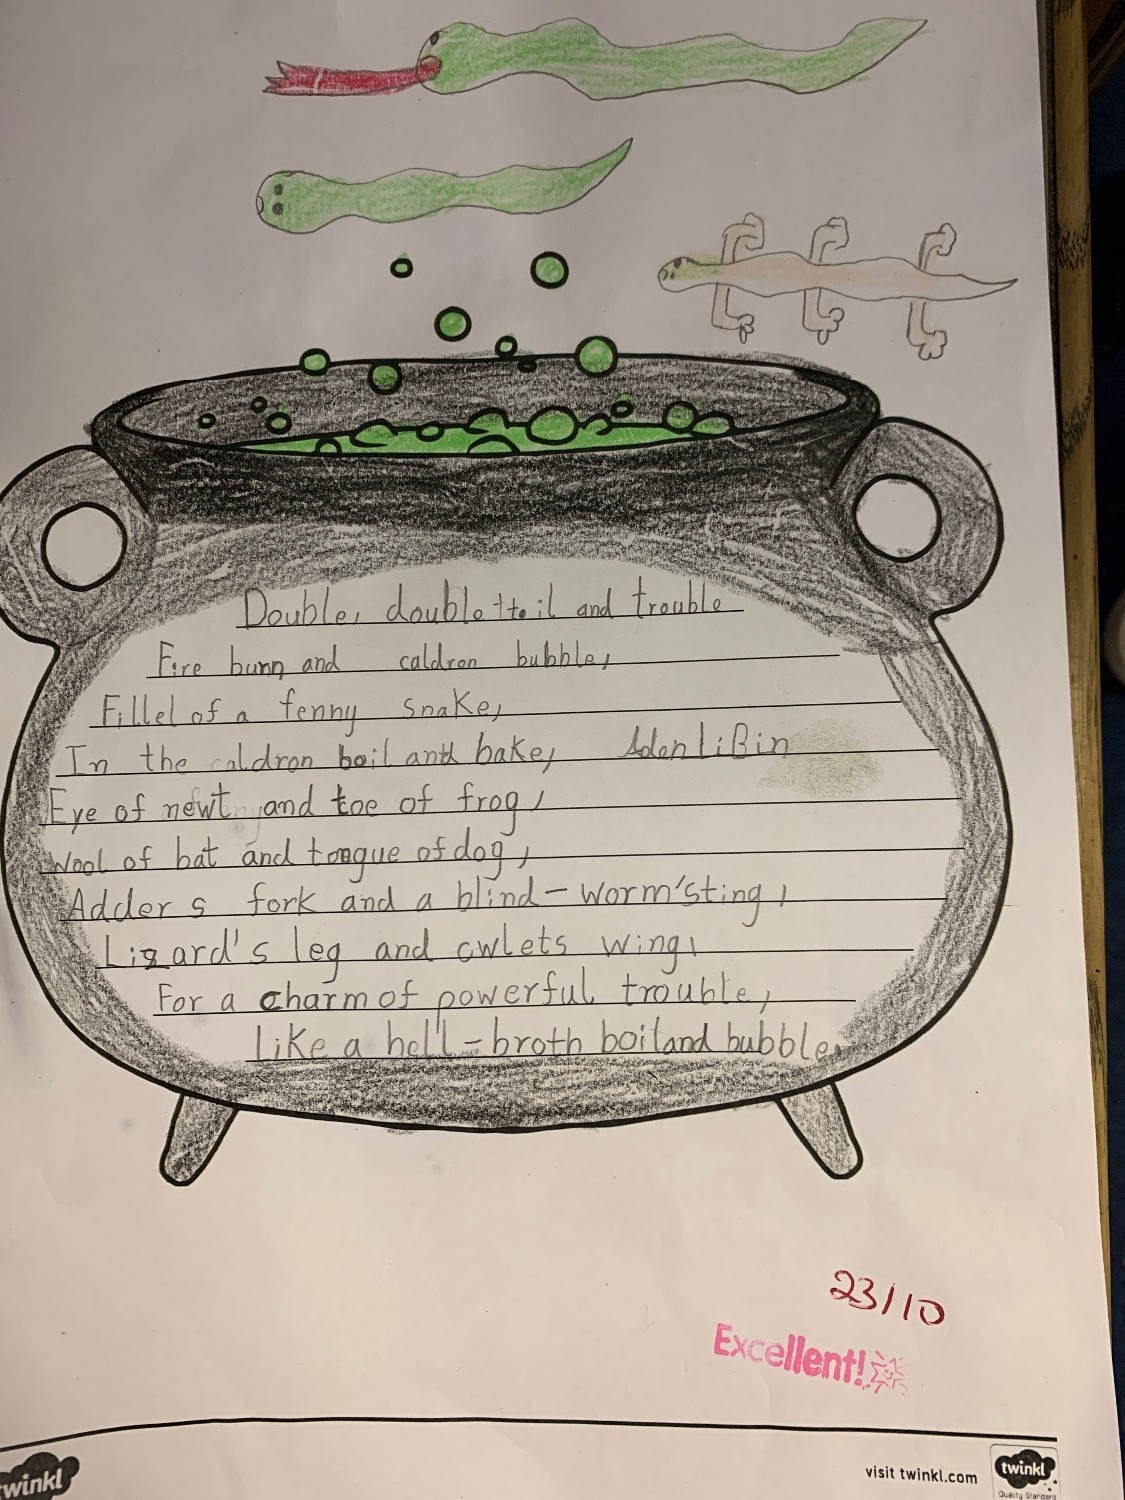 Double, double toil and trouble
Fire burn and caldron bubble,
Fillel of a fenny snake,
In the caldron boil and bake, Aden liBin
Eye of newt and toe of frog,
Wool of bat and tongue of dog,
Adder s fork and a blind-worm'sting,
Lizard's leg and owlets wing,
For a charm of powerful trouble,
Like a hell-broth boil and bubble.
23/10
Excellent!
twinkl
visit twinkl.com
twinkl
Quality Standard